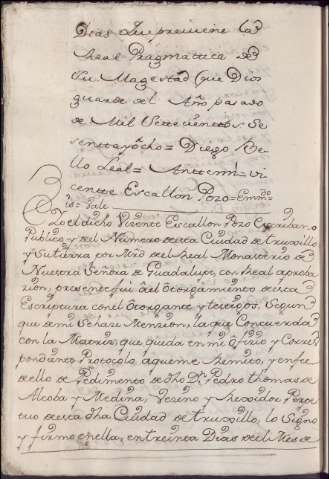 Dias Que previene la
Real Pragmatica de
Su Magestad (que Dios
guarde) del Año pasado
de Mil Setecientos Se
senta y ocho = Diego Be
llo Leal = Antemi = Vi
cente Escallon Pozo = Emmdo
= Vale
Yo el dicho Vizente Escallon Pozo Escribano
Publico y del Numero de esta Ciudad de truxillo
y Escriptura por Mrd del Real Monasterio de
Nuestra Señora de Guadalupe, con Real aproba
zion, presente fui del Otorgamiento de esta
Escriptura con el Otorgante y testigos, Segun
que de mi Se haze Menzion, la que Concuerda
con la Matriz, que queda en mi Ofizio y Corres
pondiente Protocolo aque me Remito, y en fee
de ello de Pedimento de dho Dn Pedro thomas de
Alcoba y Medina, Vezino y Rexidor Perpe
tuo de esta dha Ciudad de truxillo, lo Signo
y firmo en ella, en treinta Dias del Mes de